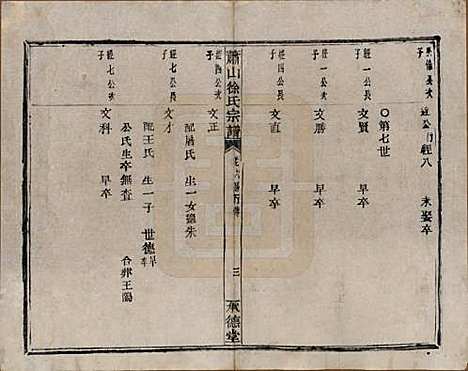 未娶卒
○第七世
經一公長子
文賢 早卒
經一公次子
文勝 早卒
經四公長子
文直 早卒
經四公次子
文正
配屠氏 生一女適朱
蕭山徐氏宗譜
三
承德堂
經七公長子
文才
配王氏 生一子 世德早卒
公氏生卒無查 合葬王陽
經七公次子
文科 早卒